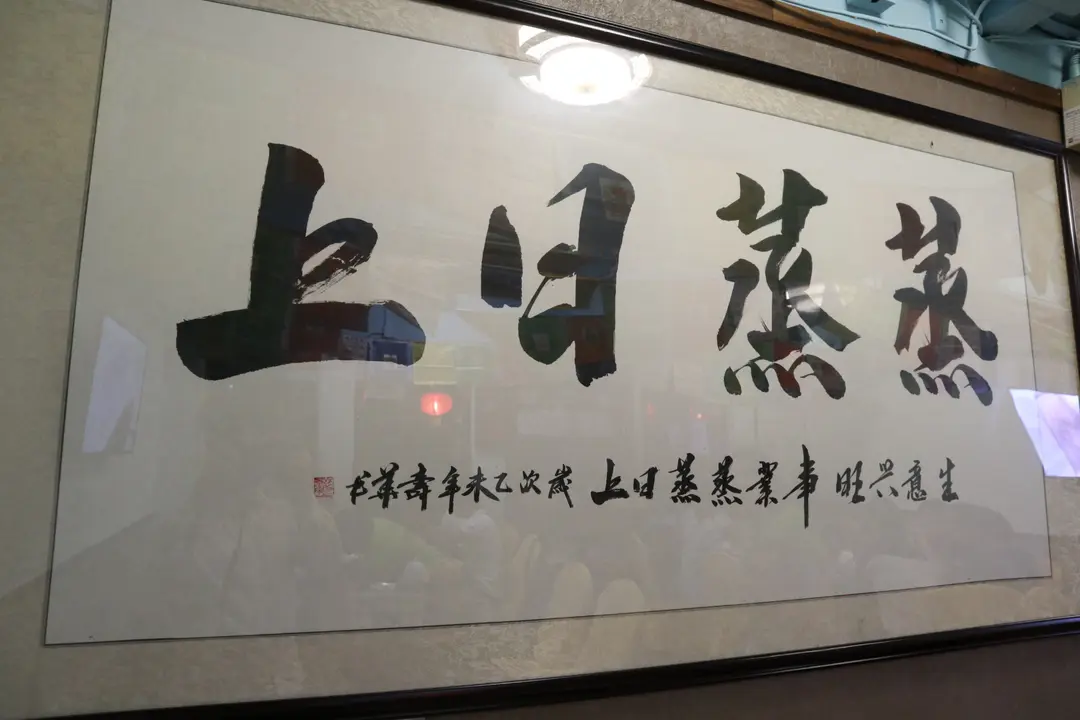 蒸蒸日上
生意兴旺事業蒸蒸日上歲次乙未年壽華书